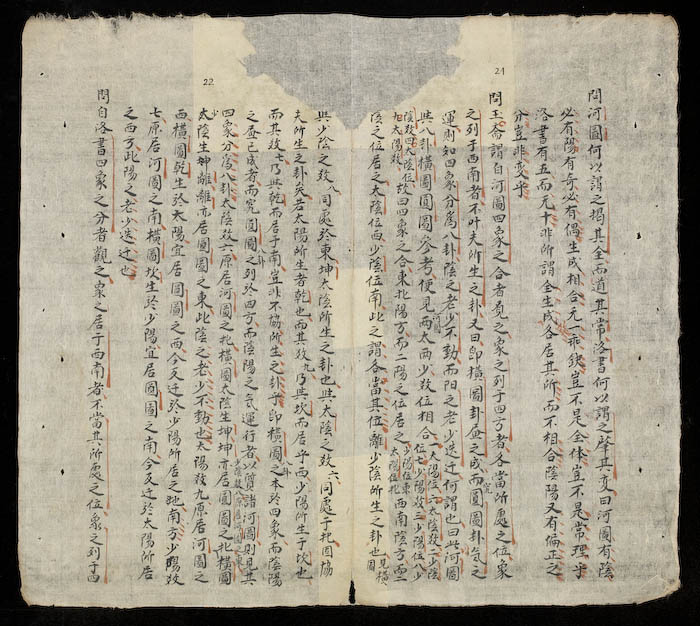 21
問河圖何以謂之揭其全而道其常洛書何以謂之肇其変曰河圖有陰
必有陽有奇必有偶生成相合元一乖欽豈不是全体豈不是常理乎
洛書有五而无十非所謂全生成各居其所而不相合陰陽又有偏正之
分豈非変乎
問玉斎謂自河圖四象之合者覓之象之列于四方者各當所處之位象
之列于西南者不叶夫所生之卦又曰即橫圖卦畫之成而圓圖卦氣之
運則知四象分爲八卦陰之老少不動而阳之老少迭迁何謂也曰此河圖
與八卦橫圖圓圖參考便見兩太兩少数位相合
陰数四太陰位故曰四象之合東北陽方而二陽之位居之西南陰方而二
陰之位居之太陰位西少陰位南此之謂各當其位離少陰所生之卦也
與少陰之数八同處於東坤太陰所生之卦也與太陰之数六同處于北固協
夫所生之卦矣若太陽所生者乾也而其数九乃與坎而居乎西少陽所生于坎也
而其数七乃與乾而居于南豈非不協所生之卦乎即橫圖之本於四象而陰陽
之畫已成者而究圓圖之列於四方而陰陽之气運行者以質諸河圖則見其
四象分爲八卦太陰数六原居河圖之北橫圖太陰生坤坤亦居圓圖之北橫圖
太陰生坤離離亦居圓圖之東此陰之老少不動也太陽数九原居河圖之
西橫圖乾生於太陽宜居圓圖之西今反迁於少陽所居之地南方少陽数
七原居河圖之南橫圖坎生於少陽宜居圓圖之南今反迁於太陽所居
之西方此陽之老少迭迁也
問自洛書四象之分者觀之象之居于西南者不當其所處之位象之列于四
22